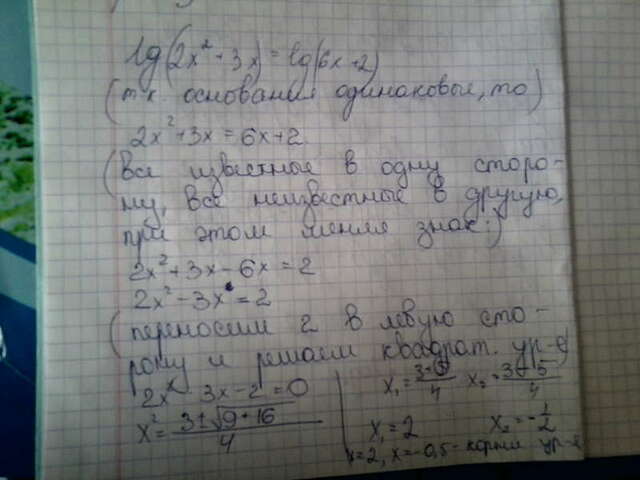 lg(2x² + 3x) = lg(6x + 2)
(т.к. основания одинаковые, то)
2x² + 3x = 6x + 2
(все известные в одну сторо-
ну, все неизвестные в другую,
при этом меняя знак:)
2x² + 3x - 6x = 2
2x² - 3x = 2
(переносим 2 в левую сто-
рону и решаем квадрат. ур-е)
2x² - 3x - 2 = 0
x² = (3±√(9 + 16))/4
x₁ = (3+5)/4 x₂ = (3-5)/4
x₁ = 2 x₂ = -1/2
x=2, x=-0,5 - корни ур-я